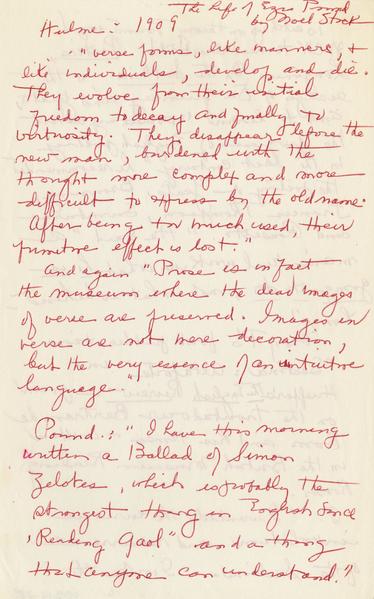 The Life of Ezra Pound
by Noel Stock
Hulme: 1909
"verse forms, like manners, &
like individuals, develop and die.
They evolve from their initial
freedom to decay and finally to
virtuosity. They disappear before the
new man, burdened with the
thought more complex and more
difficult to express by the old name.
After being too much used, their
primitive effect is lost."
And again "Prose is in fact
the museum where the dead images
of verse are preserved. Images in
verse are not mere decoration,
but the very essence of an intuitive
language."
Pound: "I have this morning
written a Ballad of Simon
Zelotes, which is probably the
strongest thing in English since
'Reading Gaol" and a thing
that anyone can understand."